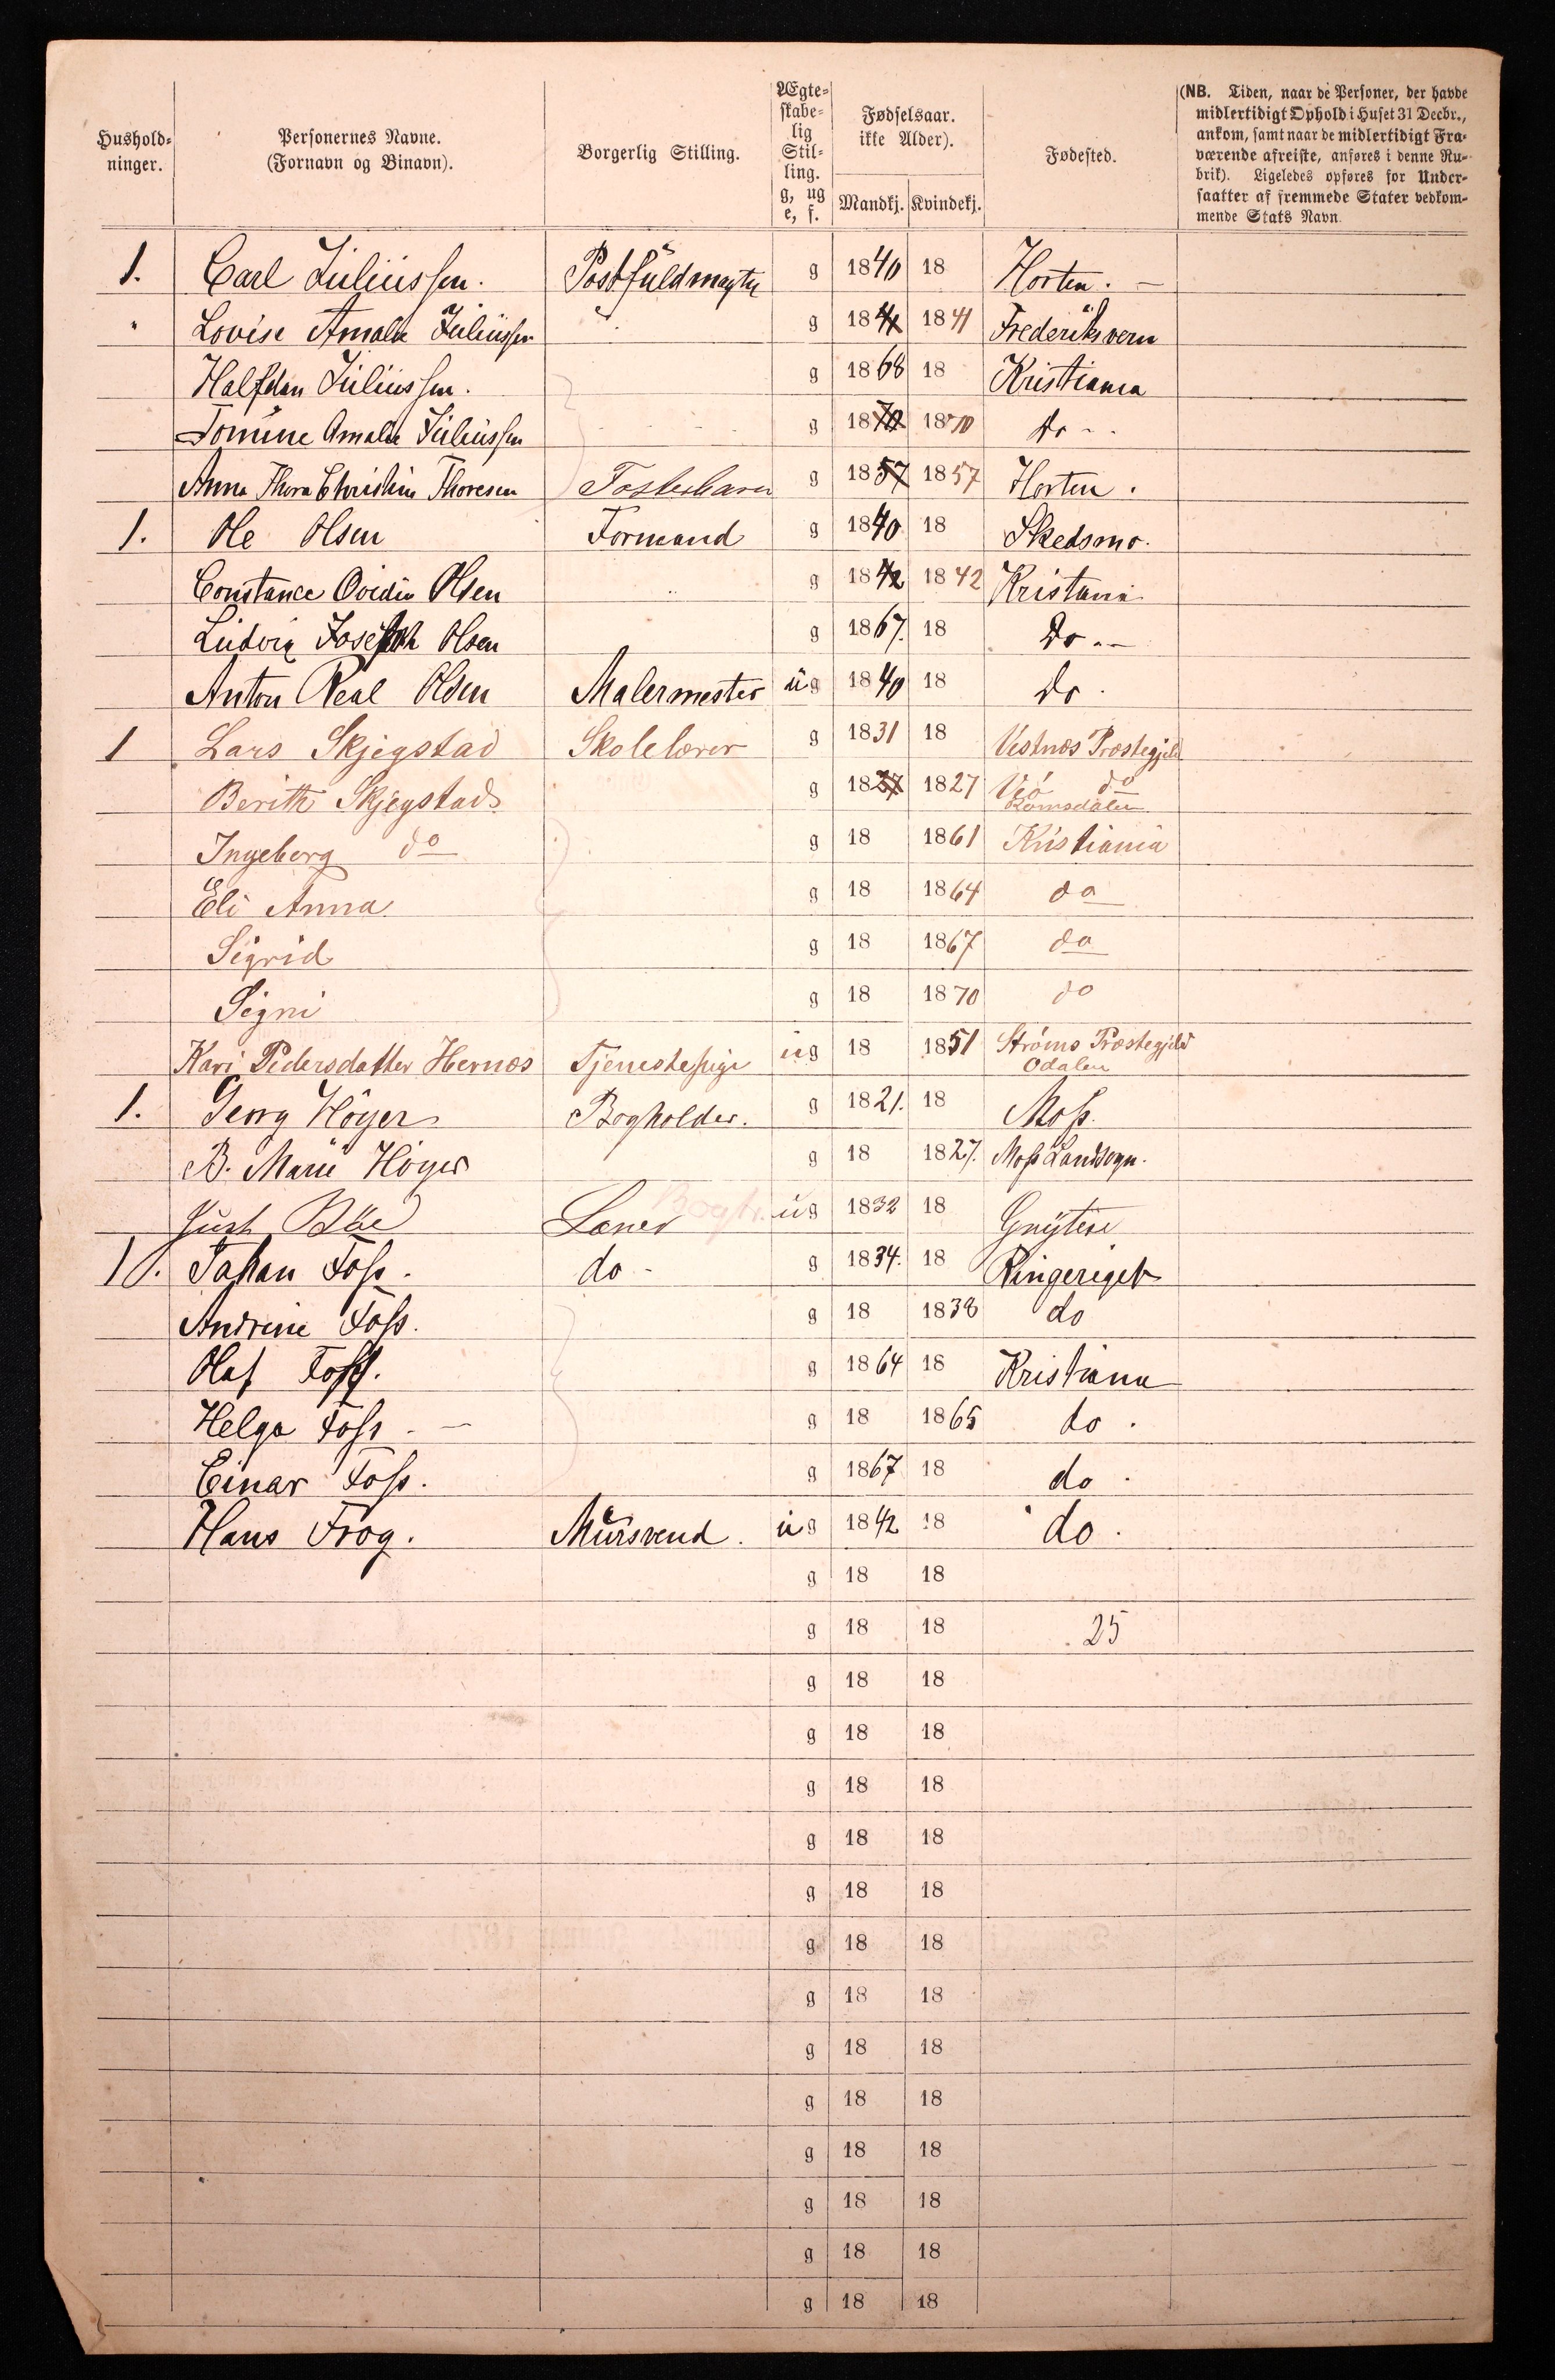 Hushold-
ninger.
Personernes Navne.
(Fornavn og Binavn).
Borgerlig Stilling.
Ægte-
skabe-
lig
Stil-
ling.
g, ug
e, f.
Fødselsaar.
ikke Alder).
Mandkj. Kvindekj.
Fødested.
(NB. Tiden, naar de Personer, der havde
midlertidigt Ophold i Huset 31 Decbr.,
ankom, samt naar de midlertidigt Fra-
værende afreiste, anføres i denne Ru-
brik). Ligeledes opføres for Under-
saatter af fremmede Stater vedkom-
mende Stats Navn.
1. Carl Juliussen. Postfuldmægtig g 1840 18 Horten. —
" Lovise Amalie Juliussen g 1841 1841 Frederiksvern
Halfdan Juliussen. g 1868 18 Kristiania
Tomine Amalie Juliussen g 1870 1870 do
Anna Thora Christine Thoresen Fosterbarn g 1857 1857 Horten.
1. Ole Olsen Formand g 1840 18 Skedsmo.
Constance Ovidia Olsen g 1842 1842 Kristania
Ludvig Joseph Olsen g 1867. 18 Do
Anton Real Olsen Malermester ug 1840 18 do
1 Lars Skjegstad Skolelærer g 1831 18 Vestnæs Præstegjeld
Berith Skjegstad g 1827 1827 Veö do
Romsdalen
Ingeborg do g 18 1861 Kristiania
Eli Anna g 18 1864 do
Sigrid g 18 1867 do
Signi g 18 1870 do
Kari Pedersdatter Hernæs Tjenestepige ug 18 1851 Strøms Præstegjeld
Odalen
1. Georg Höyer Bogholder. g 1821. 18 Moss.
B. Marie Höyer g 18 1827. Moss Landsogn.
Just ug 1832 18
1. Johan Foss. do g 1834. 18 Ringeriget
Andrine Foss. g 18 1838 do
Olaf Foss. g 1864 18 Kristiana
Helga Foss — g 18 1865 do.
Einar Foss. g 1867 18 do
Hans Frog. Mursvend. ug 1842 18 do.
g 18 18
g 18 18 25
g 18 18
g 18 18
g 18 18
g 18 18
g 18 18
g 18 18
g 18 18
g 18 18
g 18 18
g 18 18
g 18 18
g 18 18
g 18 18